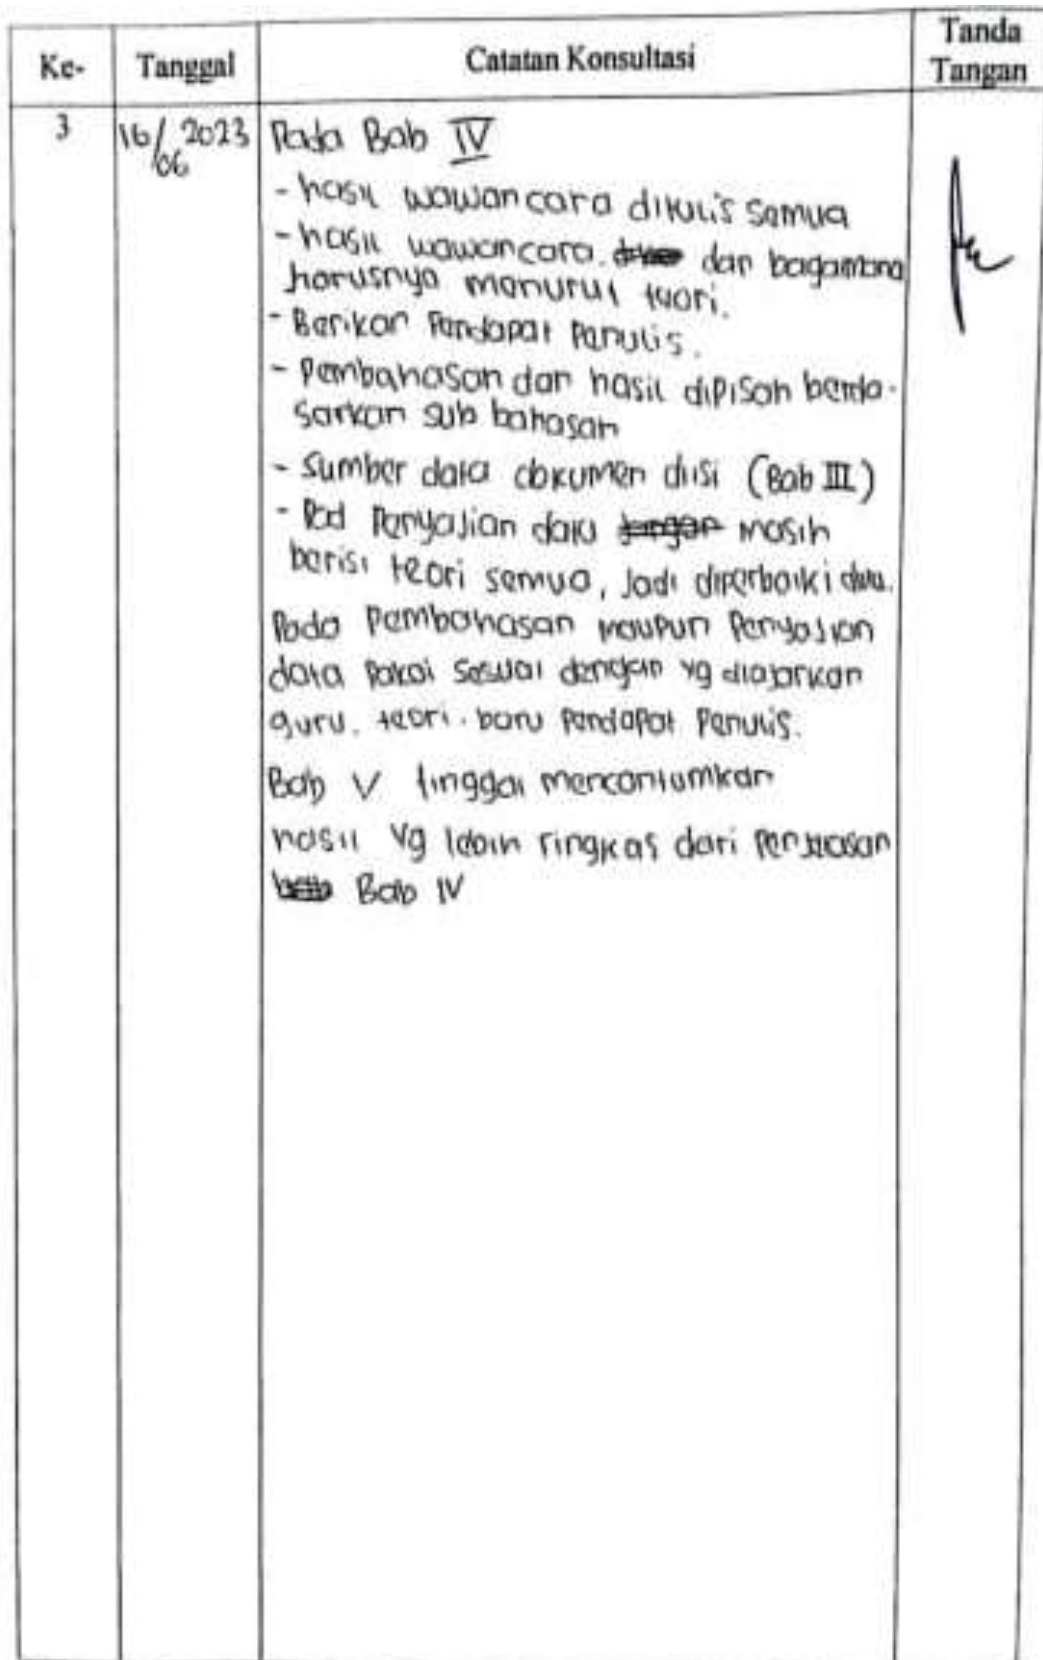 Ke- Tanggal Catatan Konsultasi Tanda Tangan
3 16/06 2023 Pada Bab IV
- hasil wawancara ditulis semua
- hasil wawancara. dan bagaimana
harusnya menurut teori.
- Berikan Pendapat Penulis.
- Pembahasan dan hasil dipisah berda-
sarkan sub bahasan
- Sumber data dokumen diisi (Bab III)
- Pad Penyajian data jangan masih
berisi teori semua, Jadi diperbaiki dulu.
Pada Pembahasan maupun Penyajian
data Pakai Sesuai dengan yg diajarkan
guru. teori. baru Pendapat Penulis.
Bab V tinggal mencantumkan
hasil yg lebih ringkas dari Penjelasan
Bab IV